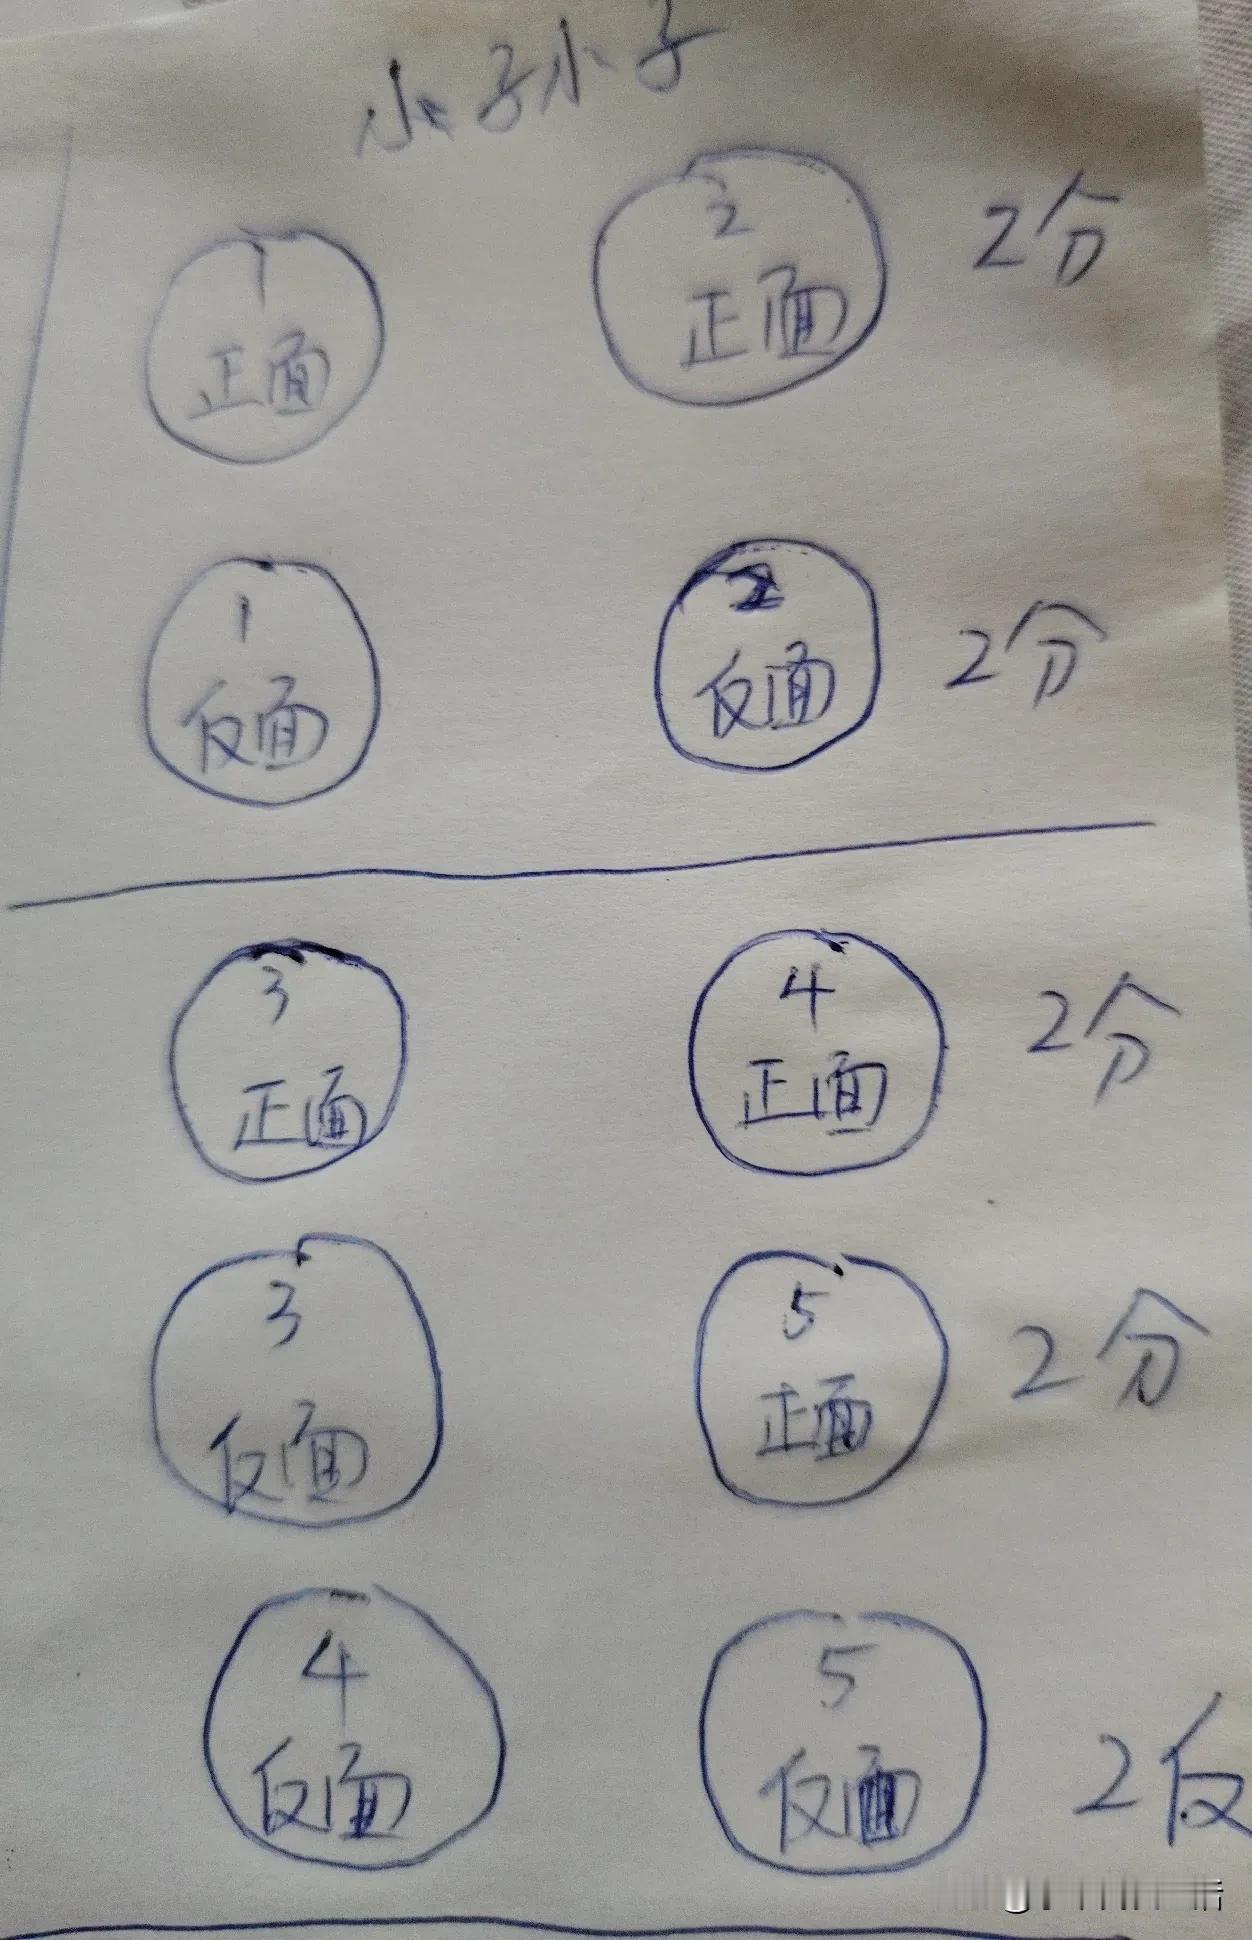 小子小子
1 2
正面 正面 2分
1 2
反面 反面 2分
3 4
正面 正面 2分
3 5
反面 正面 2分
4 5
反面 反面 2反